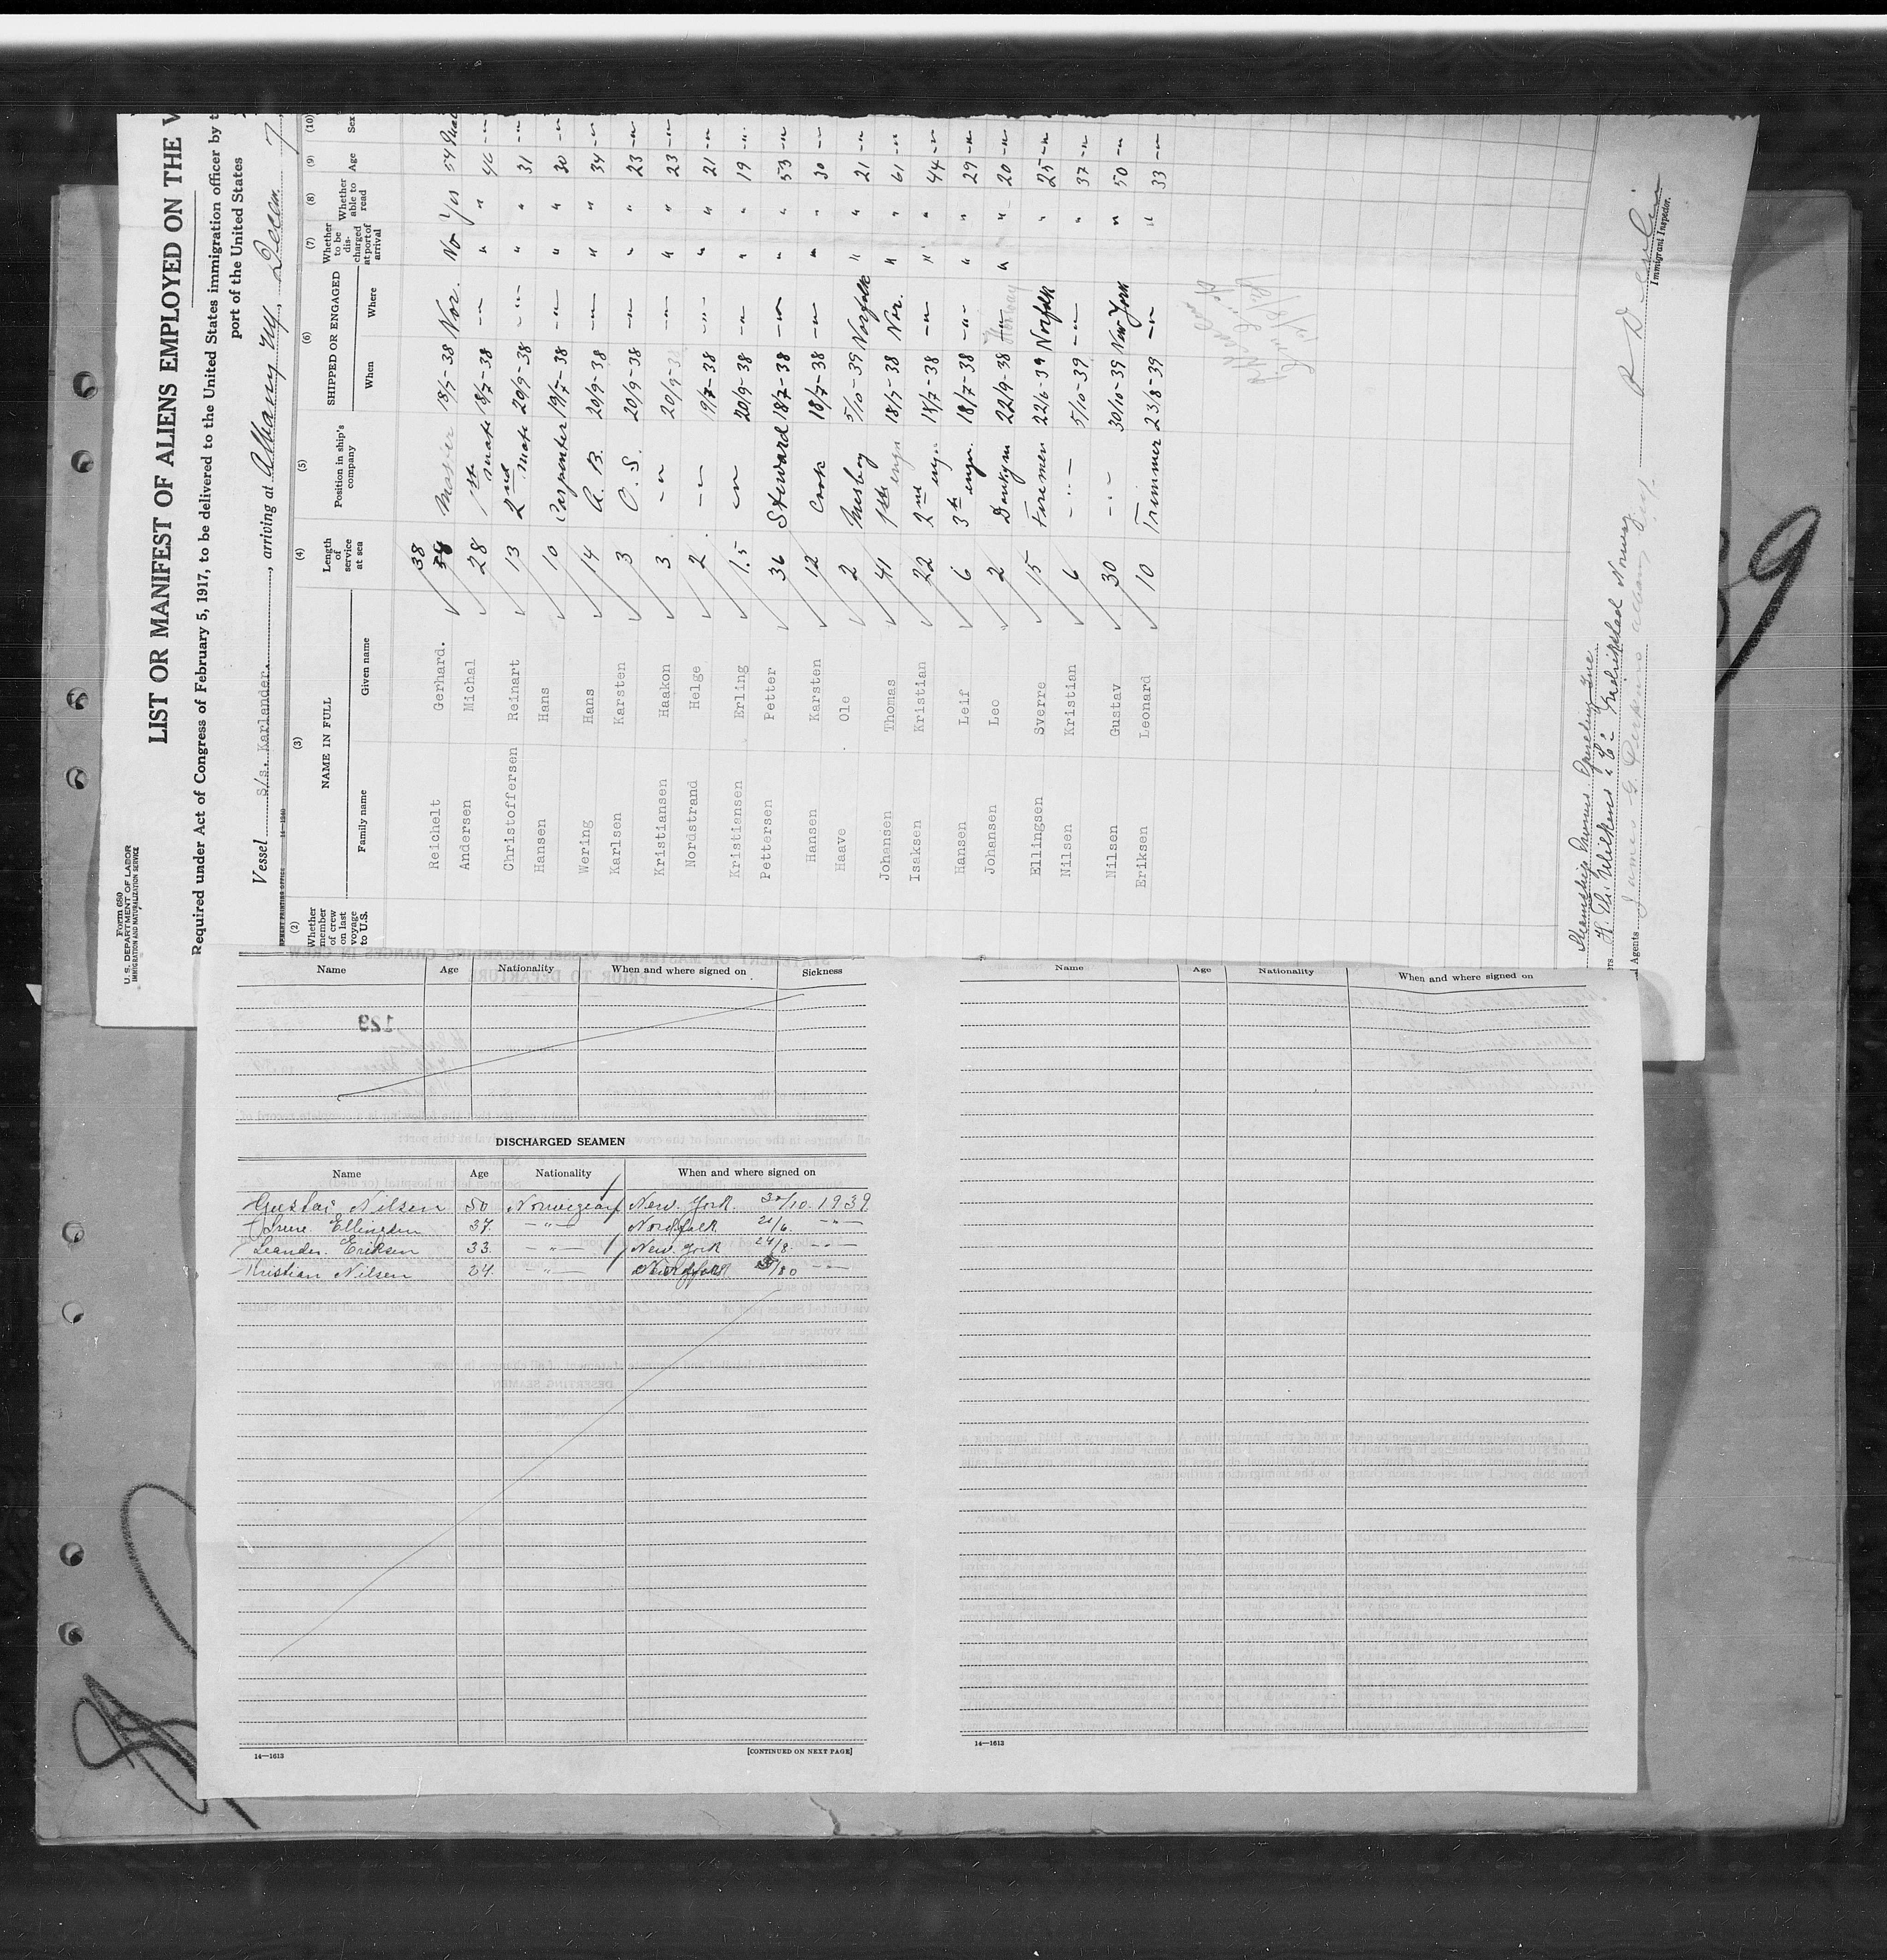 Form 680
U. S. DEPARTMENT OF LABOR
IMMIGRATION AND NATURALIZATION SERVICE
LIST OR MANIFEST OF ALIENS EMPLOYED ON THE V
Required under Act of Congress of February 5, 1917, to be delivered to the United States immigration officer by t
port of the United States
Vessel S/s. Karlander. , arriving at Albany NY, Decem. 7
(2) (3) (4) (5) (6) (7) (8) (9) (10)
Whether member of crew on last voyage to U.S. NAME IN FULL Length of service at sea Position in ship's company SHIPPED OR ENGAGED Whether to be discharged at port of arrival Whether able to read Age Sex
Family name Given name When Where
Reichelt Gerhard. 38 18/7-38 Nor. No Yes 54
Andersen Michal 28 1st mate 18/7-38 -"- " " 46 -"-
Christoffersen Reinart 13 2nd mate 20/9-38 -"- " " 31 -"-
Hansen Hans 10 Carpenter 19/7-38 -"- " " 30 -"-
Wering Hans 14 A. B. 20/9-38 -"- " " 34 -"-
Karlsen Karsten 3 O. S. 20/9-38 -"- " " 23 -"-
Kristiansen Haakon 3 -"- 20/9-38 -"- " " 23 -"-
Nordstrand Helge 2 -"- 9/7-38 -"- " " 21 -"-
Kristiansen Erling 1.5 -"- 20/9-38 -"- " " 19 -"-
Pettersen Petter 36 Steward 18/7-38 -"- " " 53 -"-
Hansen Karsten 12 Cook 18/7-38 -"- " " 30 -"-
Haave Ole 2 Messboy 5/10-39 Norfolk " " 21 -"-
Johansen Thomas 41 1ste engn 18/7-38 Nor. " " 61 -"-
Isaksen Kristian 22 2nd engn. 18/7-38 -"- " " 44 -"-
Hansen Leif 6 3th engn. 18/7-38 -"- " " 29 -"-
Johansen Leo 2 22/9-38 -"- " " 20 -"-
Ellingsen Sverre 15 Firemen 22/6-39 Norfolk " 25 -"-
Nilsen Kristian 6 -"- 5/10-39 -"- " 37 -"-
Nilsen Gustav 30 -"- 30/10-39 New York " 50 -"-
Eriksen Leonard 10 Trimmer 23/8-39 -"- " 33 -"-
Immigrant Inspector.
Agents
Name Age Nationality When and where signed on Sickness
129
DISCHARGED SEAMEN
Name Age Nationality When and where signed on
Gustav Nilsen 50 Norwegean New. York. 30/10. 1939
Ellingsen 37. -"- Nordfolk /6. -"-
Leander. Eriksen 33. -"- New. York 24/8. -"-
Kristian Nilsen 24. -"- -"-
14—1613 [CONTINUED ON NEXT PAGE]
Name Age Nationality When and where signed on
14—1613